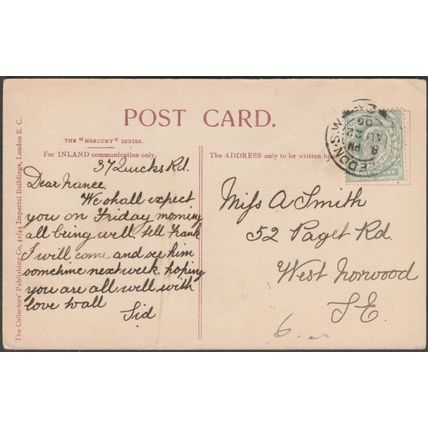 POST CARD.
THE "MERCURY" SERIES.
For INLAND communication only.
The ADDRESS only to be written here
The Collectors' Publishing Co, 41/44 Imperial Buildings, London E. C.
37 Quicks Rd.
Dear Nance.
We shall expect
you on Friday morning
all being well. tell Frank
I will come and see him
sometime next week. hoping
you are all well with
love to all
Sid
Miss A Smith
52 Paget Rd
West Norwood
S E
6
EDON·S.W
8 PM
AU 22
06
HALF PENNY